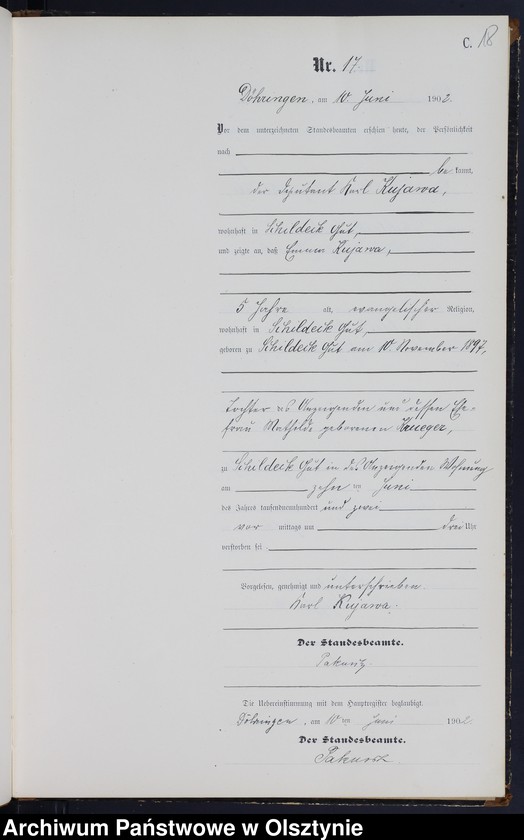 C. 18
Nr. 17.
Döhringen, am 10. Juni 1902.
Vor dem unterzeichneten Standesbeamten erschien heute, der Persönlichkeit
nach
be kannt,
der Deputant Karl Kujawa,
wohnhaft in Schildeck Gut,
und zeigte an, daß Emma Kujawa,
5 Jahre alt, evangelischer Religion,
wohnhaft in Schildeck Gut,
geboren zu Schildeck Gut am 10. November 1897,
Tochter des Anzeigenden und dessen Ehe-
frau Mathilde geborenen Krueger,
zu Schildeck Gut in des Anzeigenden Wohnung
am zehn ten Juni
des Jahres tausendneunhundert und zwei
vor mittags um drei Uhr
verstorben sei
Vorgelesen, genehmigt und unterschrieben.
Karl Kujawa.
Der Standesbeamte.
Die Uebereinstimmung mit dem Hauptregister beglaubigt.
Döhringen, am 10 ten Juni 1902.
Der Standesbeamte.
Archiwum Państwowe w Olsztynie